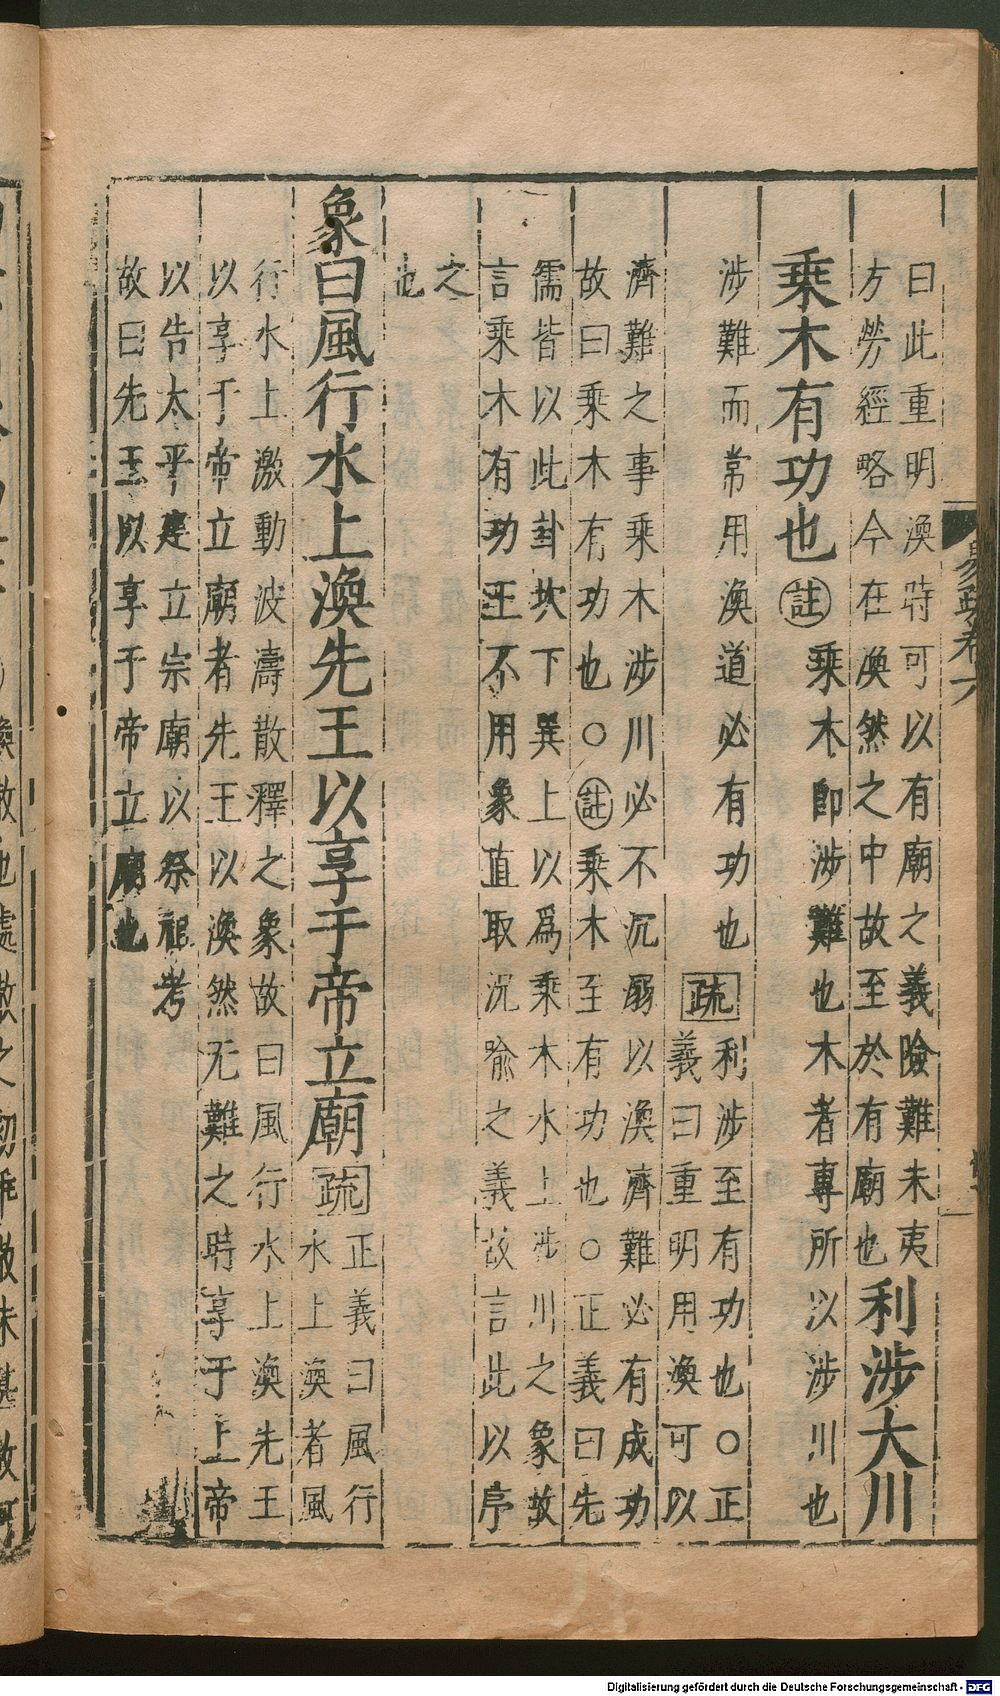 曰此重明渙時可以有廟之義險難未夷
方勞經略今在渙然之中故至於有廟也利涉大川
乘木有功也註乘木卽涉難也木者專所以涉川也
涉難而常用渙道必有功也疏利涉至有功也○正
義曰重明用渙可以
濟難之事乘木涉川必不沉溺以渙濟難必有成功
故曰乘木有功也○註乘木至有功也○正義曰先
儒皆以此卦坎下巽上以爲乘木水上涉川之象故
言乘木有功王不用象直取況喩之義故言此以序
之
也
象曰風行水上渙先王以享于帝立廟疏正義曰風行
水上渙者風
行水上激動波濤散釋之象故曰風行水上渙先王
以享于帝立廟者先王以渙然无難之時享于上帝
以告太平建立宗廟以祭祖考
故曰先王以享于帝立廟也
易疏卷六
Digitalisierung gefördert durch die Deutsche Forschungsgemeinschaft - DFG